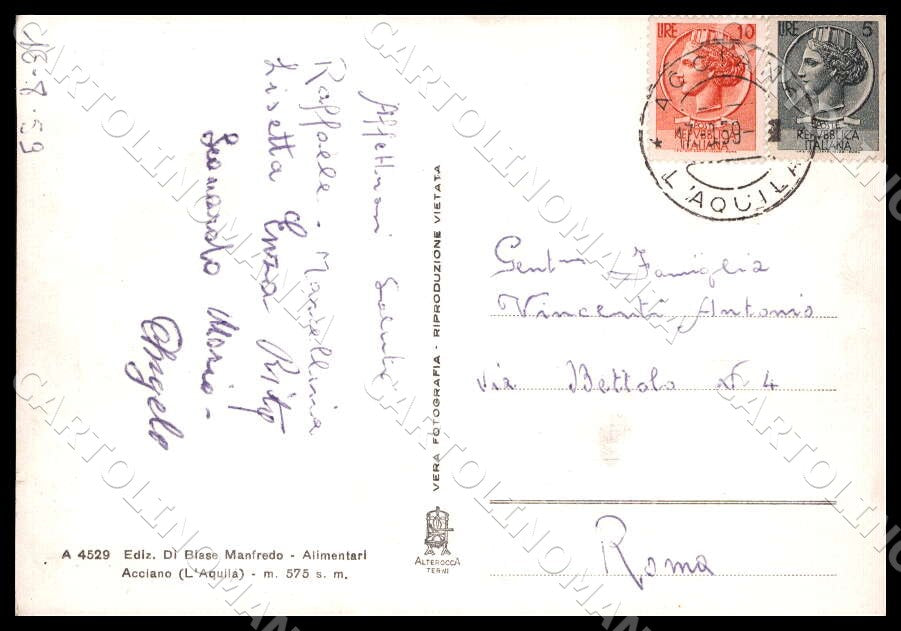 18-8-59
Affettuosi Saluti
Raffaele - Marcellina
Lisetta Enza Rita
Leonardo Mario -
Angelo
VERA FOTOGRAFIA - RIPRODUZIONE VIETATA
LIRE 10
REPVBBLICA
ITALIANA
LIRE 5
POSTE
REPVBBLICA
ITALIANA
L'AQUILA
Gent.ma Famiglia
Vincenti Antonio
via Bettolo N 4
Roma
A 4529 Ediz. Di Biase Manfredo - Alimentari
Acciano (L'Aquila) - m. 575 s. m.
ALTEROCCA
TERNI
CARTOLINOMANIA